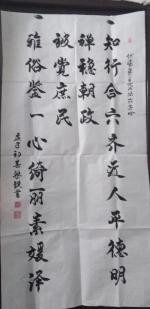 知行合六齐近人平德明
禅稳朝政
被觉庶民
雅俗鉴一心绮丽素媛泽